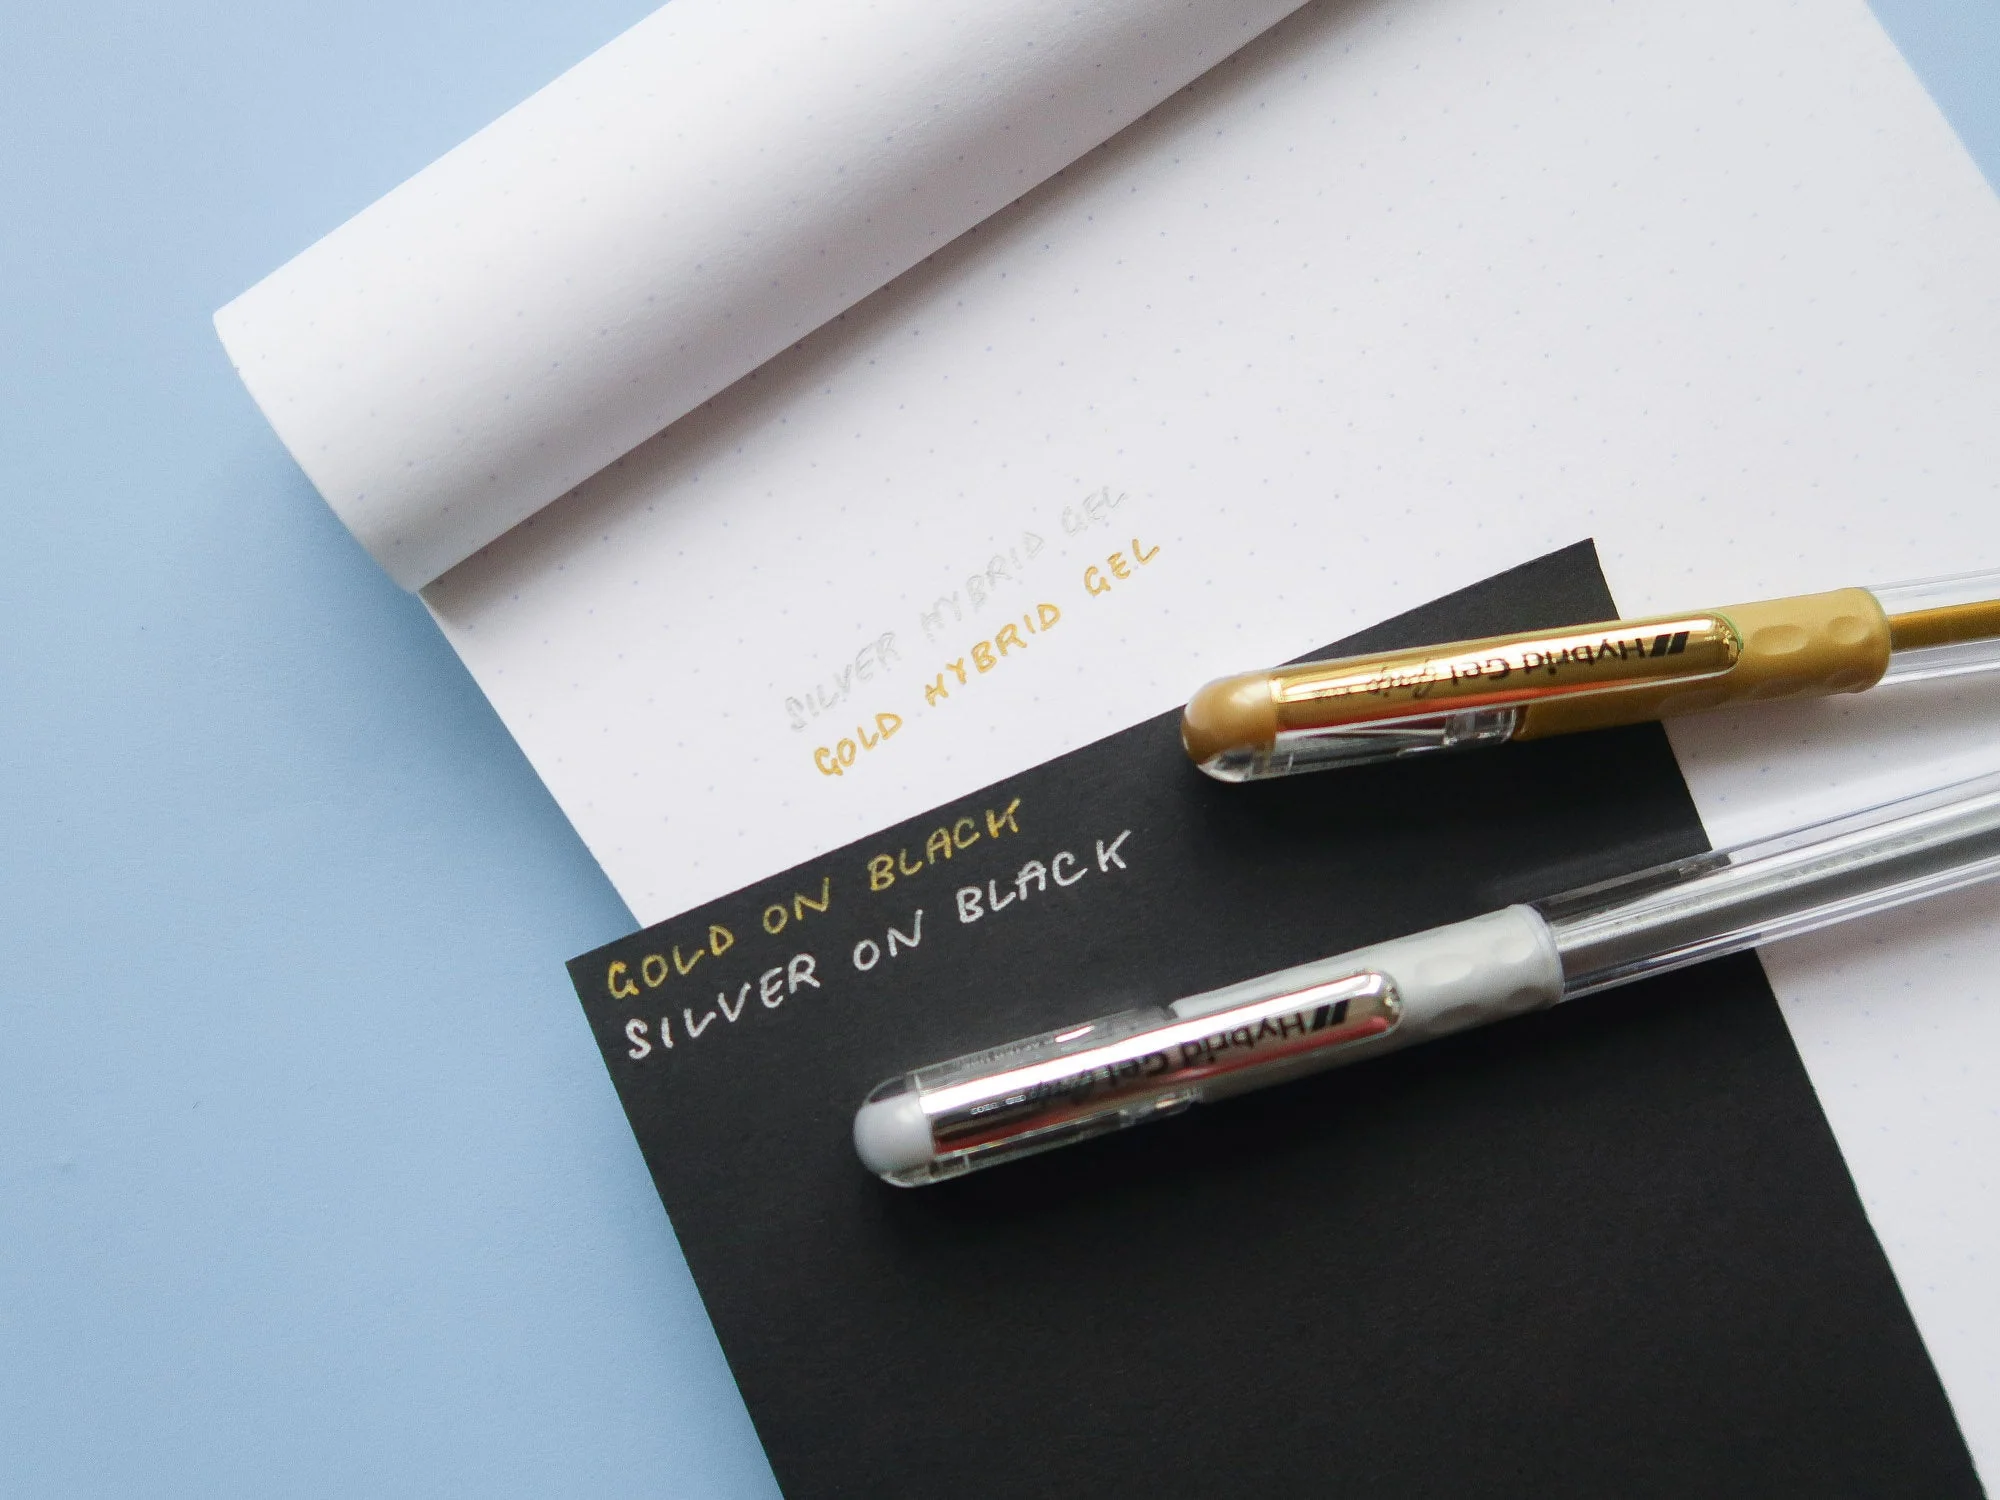 SILVER HYBRID GEL
GOLD HYBRID GEL
GOLD ON BLACK
SILVER ON BLACK
Hybrid Gel Grip
Hybrid Gel Grip